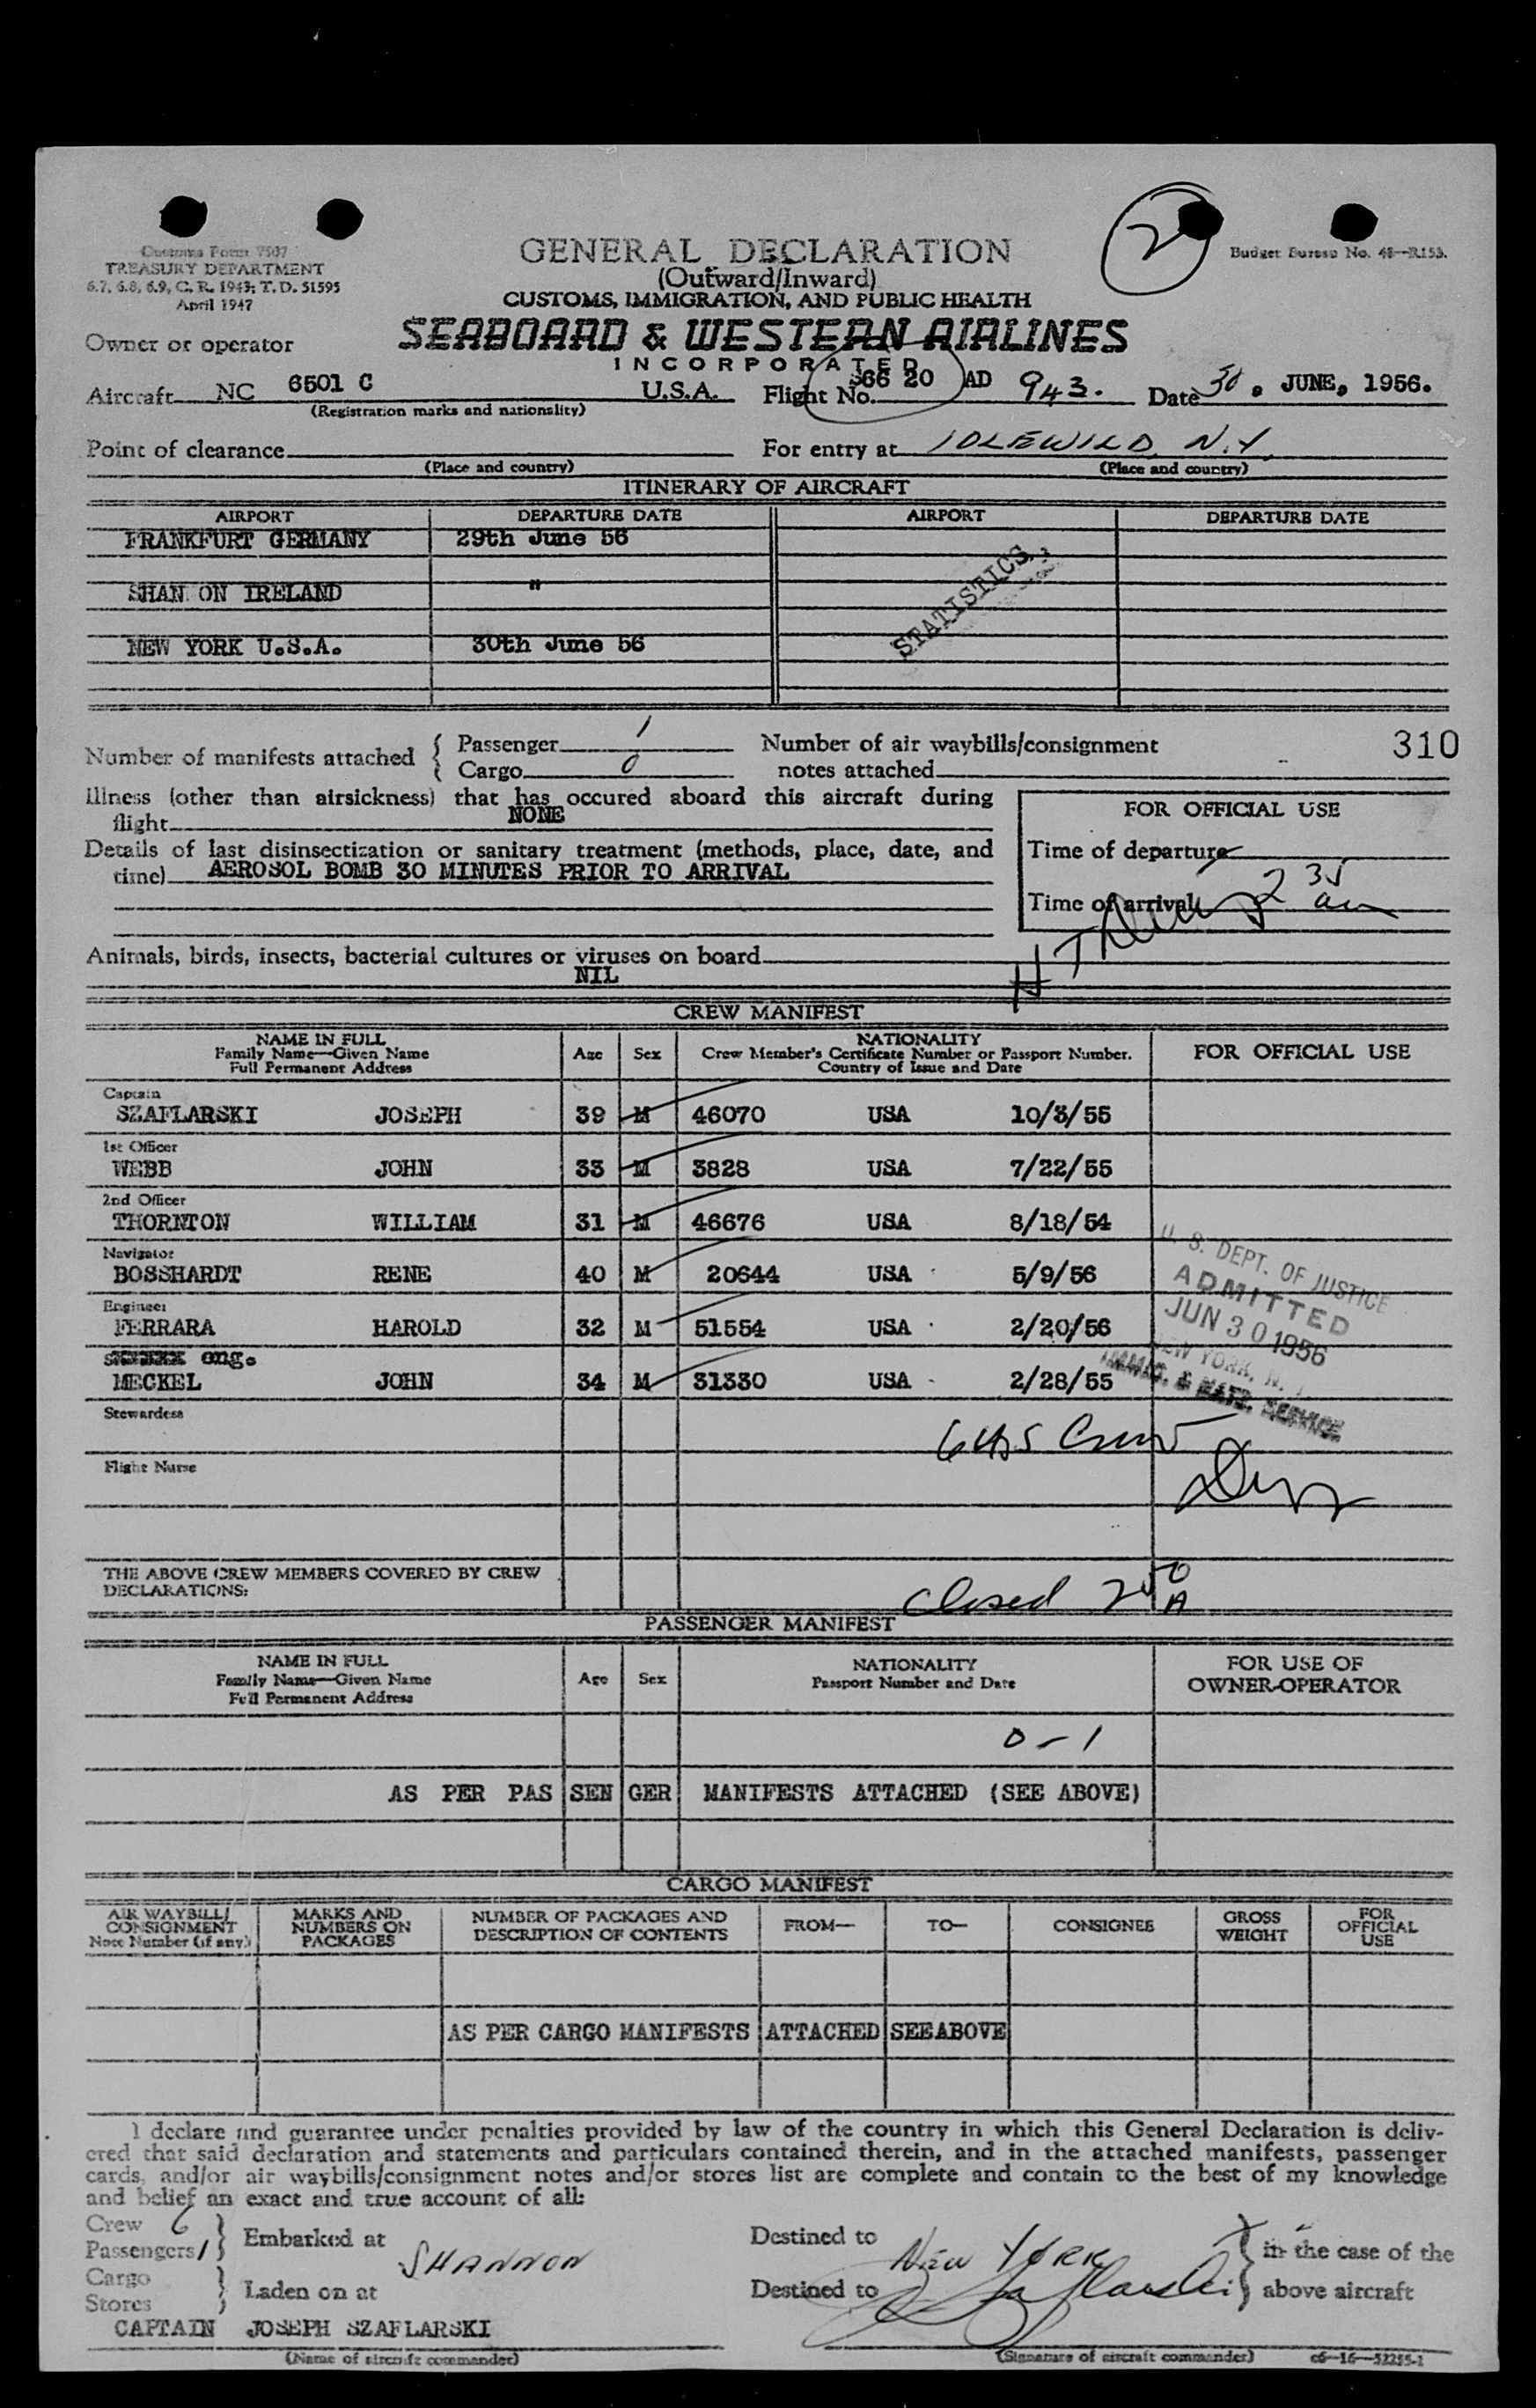 2
Customs Form 7507
TREASURY DEPARTMENT
6.7, 6.8, 6.9, C. R. 1943; T. D. 51595
April 1947
GENERAL DECLARATION
(Outward/Inward)
CUSTOMS, IMMIGRATION, AND PUBLIC HEALTH
Budget Bureau No. 48—R153.
Owner or operator
SEABOARD & WESTERN AIRLINES
INCORPORATED
Aircraft NC 6501 C U.S.A. Flight No. S66 20 AD 943. Date 30, JUNE, 1956.
(Registration marks and nationality)
Point of clearance For entry at IDLEWILD, N.Y.
(Place and country) (Place and country)
ITINERARY OF AIRCRAFT
AIRPORT DEPARTURE DATE AIRPORT DEPARTURE DATE
FRANKFURT GERMANY 29th June 56
SHAN ON IRELAND "
STATISTICS
NEW YORK U.S.A. 30th June 56
Number of manifests attached { Passenger 1 Number of air waybills/consignment 310
Cargo 0 notes attached
Illness (other than airsickness) that has occured aboard this aircraft during
flight NONE
FOR OFFICIAL USE
Details of last disinsectization or sanitary treatment (methods, place, date, and
time) AEROSOL BOMB 30 MINUTES PRIOR TO ARRIVAL
Time of departure
Time of arrival 2 35 am
Animals, birds, insects, bacterial cultures or viruses on board
NIL
CREW MANIFEST
NAME IN FULL Age Sex NATIONALITY FOR OFFICIAL USE
Family Name—Given Name Crew Member's Certificate Number or Passport Number.
Full Permanent Address Country of Issue and Date
Captain
SZAFLARSKI JOSEPH 39 M 46070 USA 10/3/55
1st Officer
WEBB JOHN 33 M 3828 USA 7/22/55
2nd Officer
THORNTON WILLIAM 31 M 46676 USA 8/18/54
Navigator
BOSSHARDT RENE 40 M 20644 USA 5/9/56
Engineer
FERRARA HAROLD 32 M 51554 USA 2/20/56
eng.
MECKEL JOHN 34 M 31330 USA 2/28/55
U. S. DEPT. OF JUSTICE
ADMITTED
JUN 30 1956
NEW YORK, N. Y.
IMMIG. & NATZ. SERVICE
Stewardess
6 US Crew
Flight Nurse
THE ABOVE CREW MEMBERS COVERED BY CREW
DECLARATIONS:
Closed 2 50 A
PASSENGER MANIFEST
NAME IN FULL Age Sex NATIONALITY FOR USE OF
Family Name—Given Name Passport Number and Date OWNER-OPERATOR
Full Permanent Address
0 - 1
AS PER PAS SEN GER MANIFESTS ATTACHED (SEE ABOVE)
CARGO MANIFEST
AIR WAYBILL/ MARKS AND NUMBER OF PACKAGES AND FROM— TO— CONSIGNEE GROSS FOR
CONSIGNMENT NUMBERS ON DESCRIPTION OF CONTENTS WEIGHT OFFICIAL
Note Number (if any) PACKAGES USE
AS PER CARGO MANIFESTS ATTACHED SEE ABOVE
I declare and guarantee under penalties provided by law of the country in which this General Declaration is deliv-
ered that said declaration and statements and particulars contained therein, and in the attached manifests, passenger
cards, and/or air waybills/consignment notes and/or stores list are complete and contain to the best of my knowledge
and belief an exact and true account of all:
Crew 6
Passengers 1 } Embarked at SHANNON Destined to New YORK } in the case of the
Cargo
Stores } Laden on at Destined to above aircraft
J Szaflarski
CAPTAIN JOSEPH SZAFLARSKI
(Name of aircraft commander) (Signature of aircraft commander) c6—16—52255-1